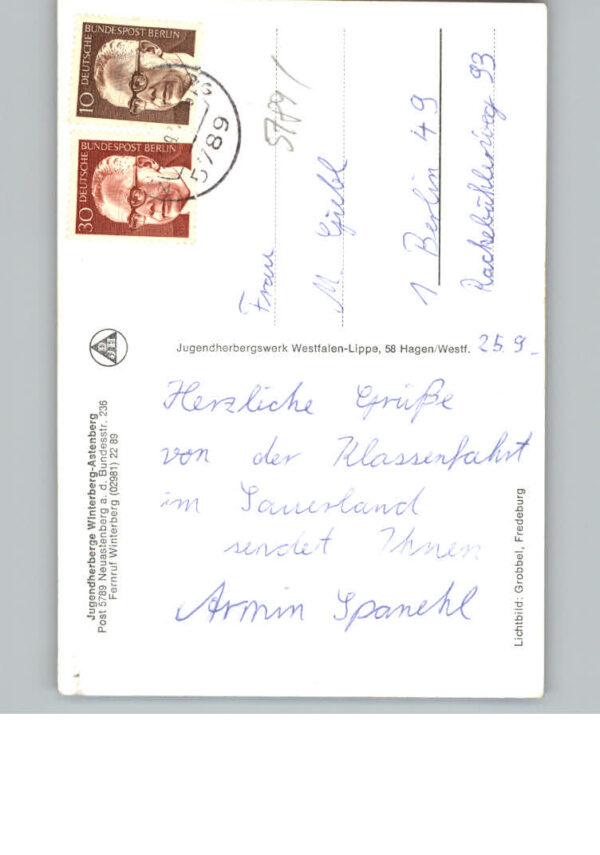 Jugendherberge Winterberg-Astenberg
Post 5789 Neuastenberg a. d. Bundesstr. 236
Fernruf Winterberg (02981) 22 89
25.9.
Herzliche Grüße
von der Klassenfahrt
im Sauerland
sendet Ihnen
Armin Spanehl
Jugendherbergswerk Westfalen-Lippe, 58 Hagen/Westf.
DJH
10 DEUTSCHE BUNDESPOST BERLIN
30 DEUTSCHE BUNDESPOST BERLIN
5789
5789/
Frau
M.
1 Berlin 49
93
Lichtbild: Grobbel, Fredeburg